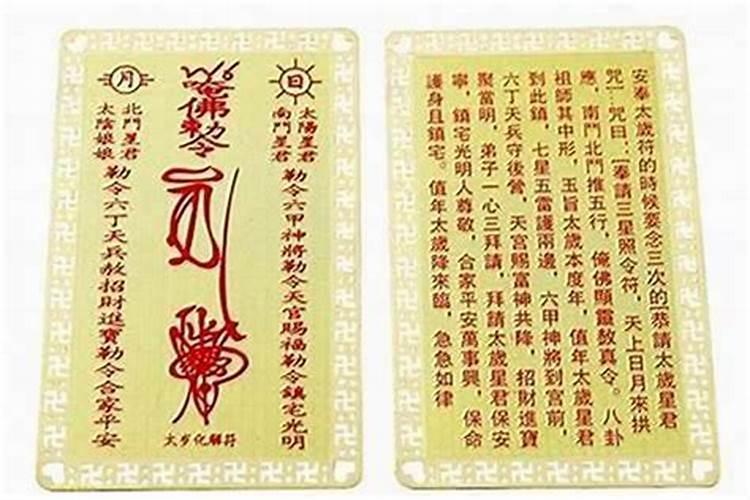 日
太陽星君
南鬥星君
勒令六甲神將勒令天官賜福勒令鎮宅光明
唵佛勅令
太岁化解符
月
北鬥星君
太陰娘娘
勒令六丁天兵敖招財進寶勒令合家平安
安奉太歲符的時候要念三次的[恭請太歲星君
咒…咒曰：[奉請三星照令符，天上日月來拱
應，南鬥北鬥推五行，俺佛顯靈敖真令。八卦
祖師其中形，玉旨太歲本度年，值年太歲星君
到此鎮，七星五雷護兩邊，六甲神將到宮前，
六丁天兵守後營，天宮賜富神共降，招財進寶
聚當明，弟子一心三拜請，拜請太歲星君保安
寧，鎮宅光明人尊敬，合家平安萬事興，保命
護身且鎮宅。值年太歲降來臨，急急如律